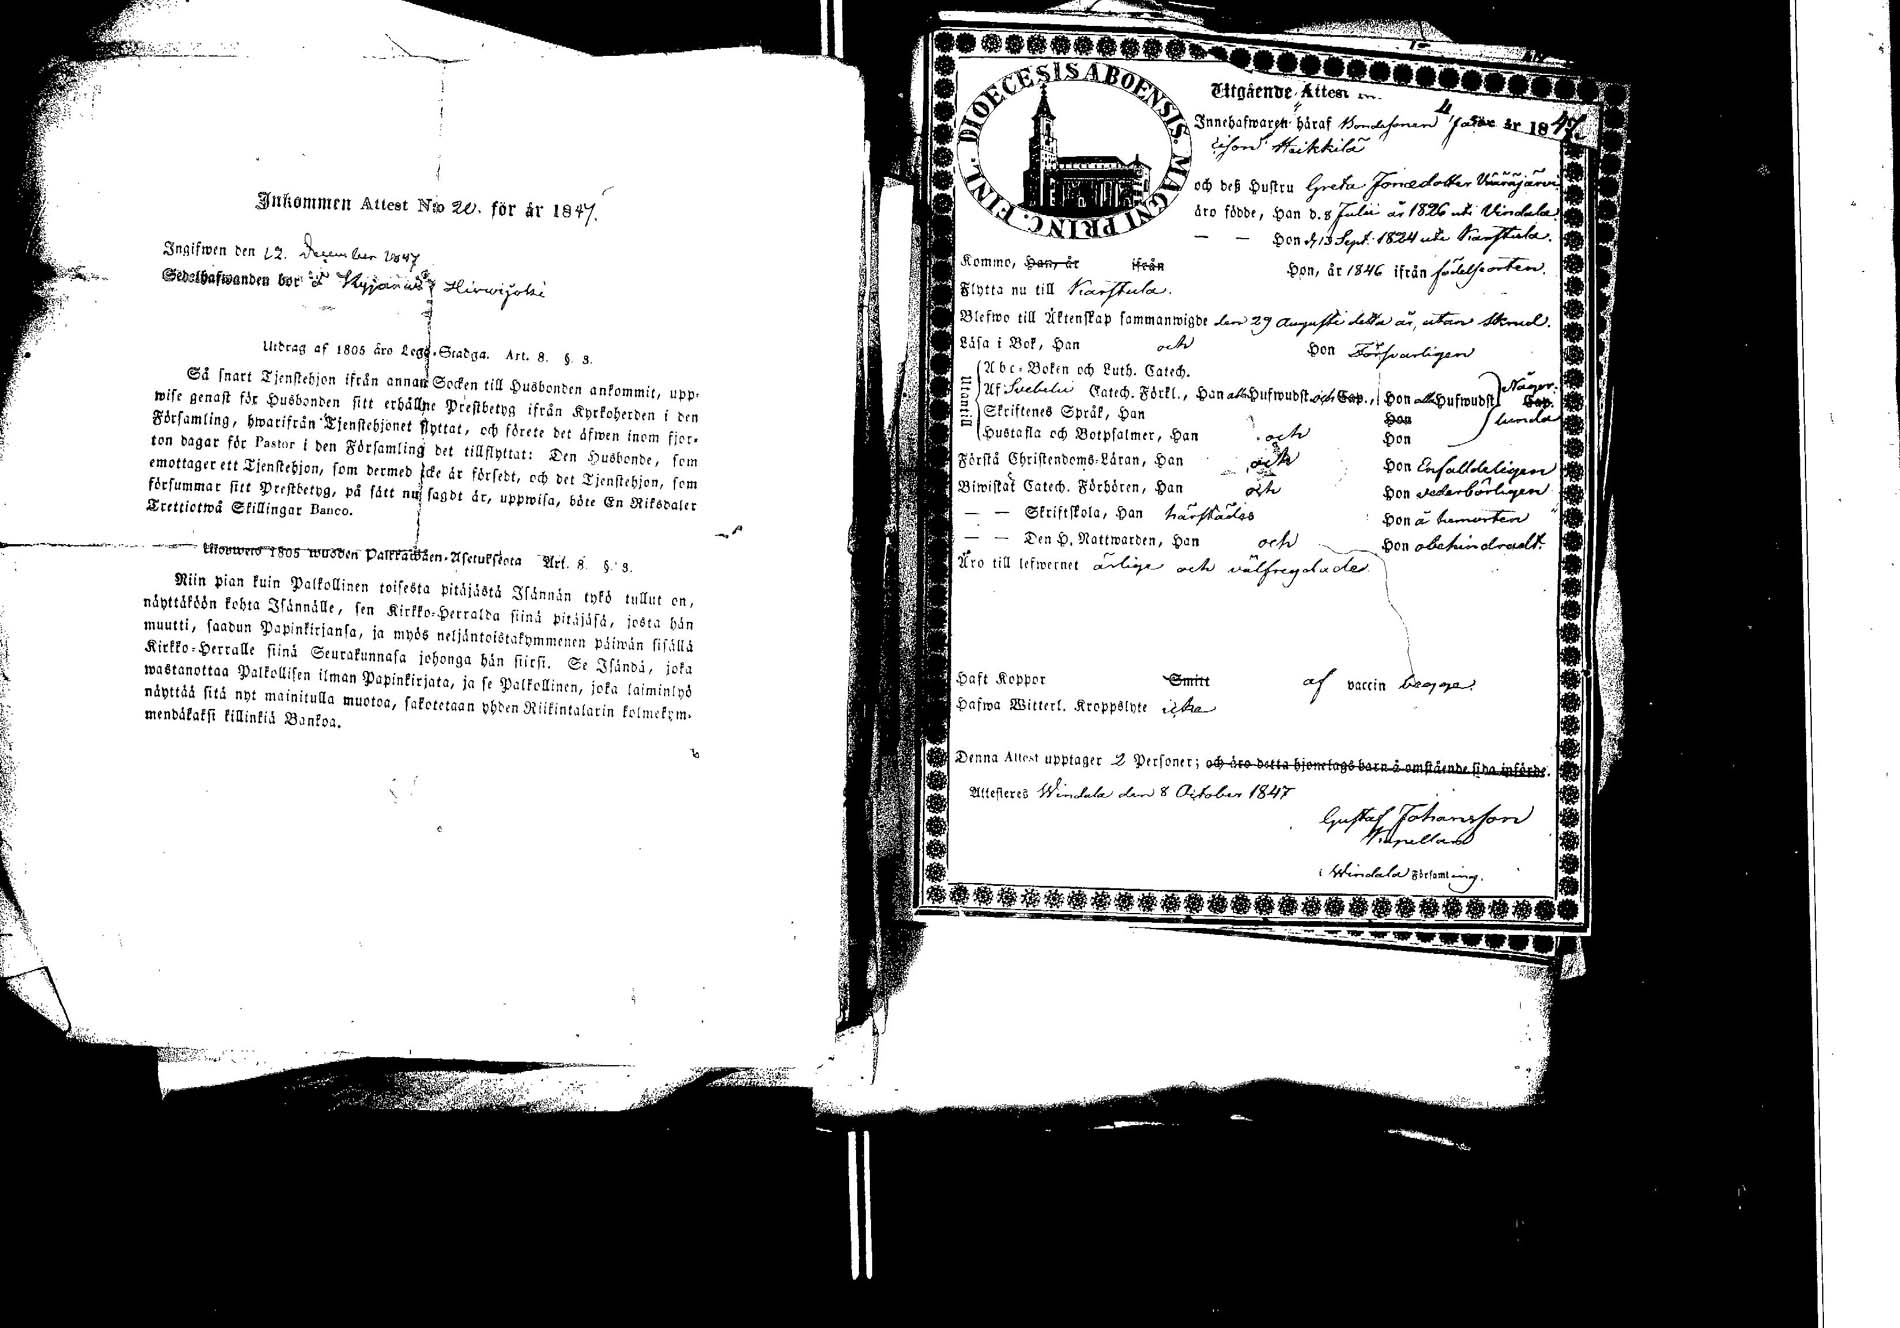 Inkommen Attest N:o 20. för år 1847.
Ingifwen den 12. December 1847
Sedelhafwanden bor å Kyjänäs Hirwijoki
Utdrag af 1805 åro Lego-Stadga. Art. 8. §. 3.
Så snart Tjenstehjon ifrån annan Socken till Husbonden ankommit, upp-
wise genast för Husbonden sitt erhållne Prestbetyg ifrån Kyrkoherden i den
Församling, hwarifrån Tjenstehjonet flyttat, och förete det åfwen inom fjor-
ton dagar för Pastor i den Församling det tillflyttat: Den Husbonde, som
emottager ett Tjenstehjon, som dermed icke är försedt, och det Tjenstehjon, som
försummar sitt Prestbetyg, på sått nu sagdt är, uppwisa, böte En Riksdaler
Trettiotwå Skillingar Banco.
Ulowweto 1805 wuoden Palkkawåen-Asetuksesta Art. 8. §. 3.
Niin pian kuin Palkollinen toisesta pitäjästä Isännän tykö tullut on,
näyttäköön kohta Isännälle, sen Kirkko-Herralda siinä pitäjäsä, josta hän
muutti, saadun Papinkirjansa, ja myös neljäntoistakymmenen päiwän sisällä
Kirkko-Herralle siinä Seurakunnasa johonga hän siirsi. Se Isändä, joka
wastanottaa Palkollisen ilman Papinkirjata, ja se Palkollinen, joka laiminlyö
näyttää sitä nyt mainitulla muotoa, sakotetaan yhden Riikintalarin kolmekym-
mendäkaksi killinkiä Bankoa.
DIOECESIS ABOENSIS. MAGNI PRINC. FINL.
Utgående Attest
4 för år 1847.
Innehafwaren häraf Bondesonen
Heikkilä
och deß Hustru Greta Jonædotter Vääräjärvi
äro födde, Han d. 8 Julii år 1826 uti Vindala
— — Hon d 13 Sept. 1824 uti Karstula.
Kommo, Han, år ifrån Hon, år 1846 ifrån födelseorten.
Flytta nu till Karstula.
Blefwo till Äktenskap sammanwigde den 29 Augusti detta år, utan Skrud.
Läsa i Bok, Han och Hon Försvarligen
Utantill
Abc-Boken och Luth. Catech.
Af Svebelii Catech. Förkl., Han alla Hufwudst. och Cap., Hon alla Hufwudst. Cap. Någor-
Skriftenes Språk, Han Hon lunda
Hustafla och Botpsalmer, Han och Hon
Förstå Christendoms-Läran, Han och Hon Enfaldeligen
Biwistat Catech. Förhören, Han och Hon vederbörligen
— — Skriftskola, Han härstädes Hon å hemorten
— — Den H. Nattwarden, Han och Hon obehindradt.
Äro till lefwernet ärlige och välfregdade
Haft Koppor Smitt af vaccin begge.
Hafwa Witterl. Kroppslyte icke
Denna Attest upptager 2 Personer; och äro detta hjonelags barn å omstående sida införde.
Attesteres Windala den 8 October 1847
Gustaf Johansson
Kapellan
i Windala Församling.